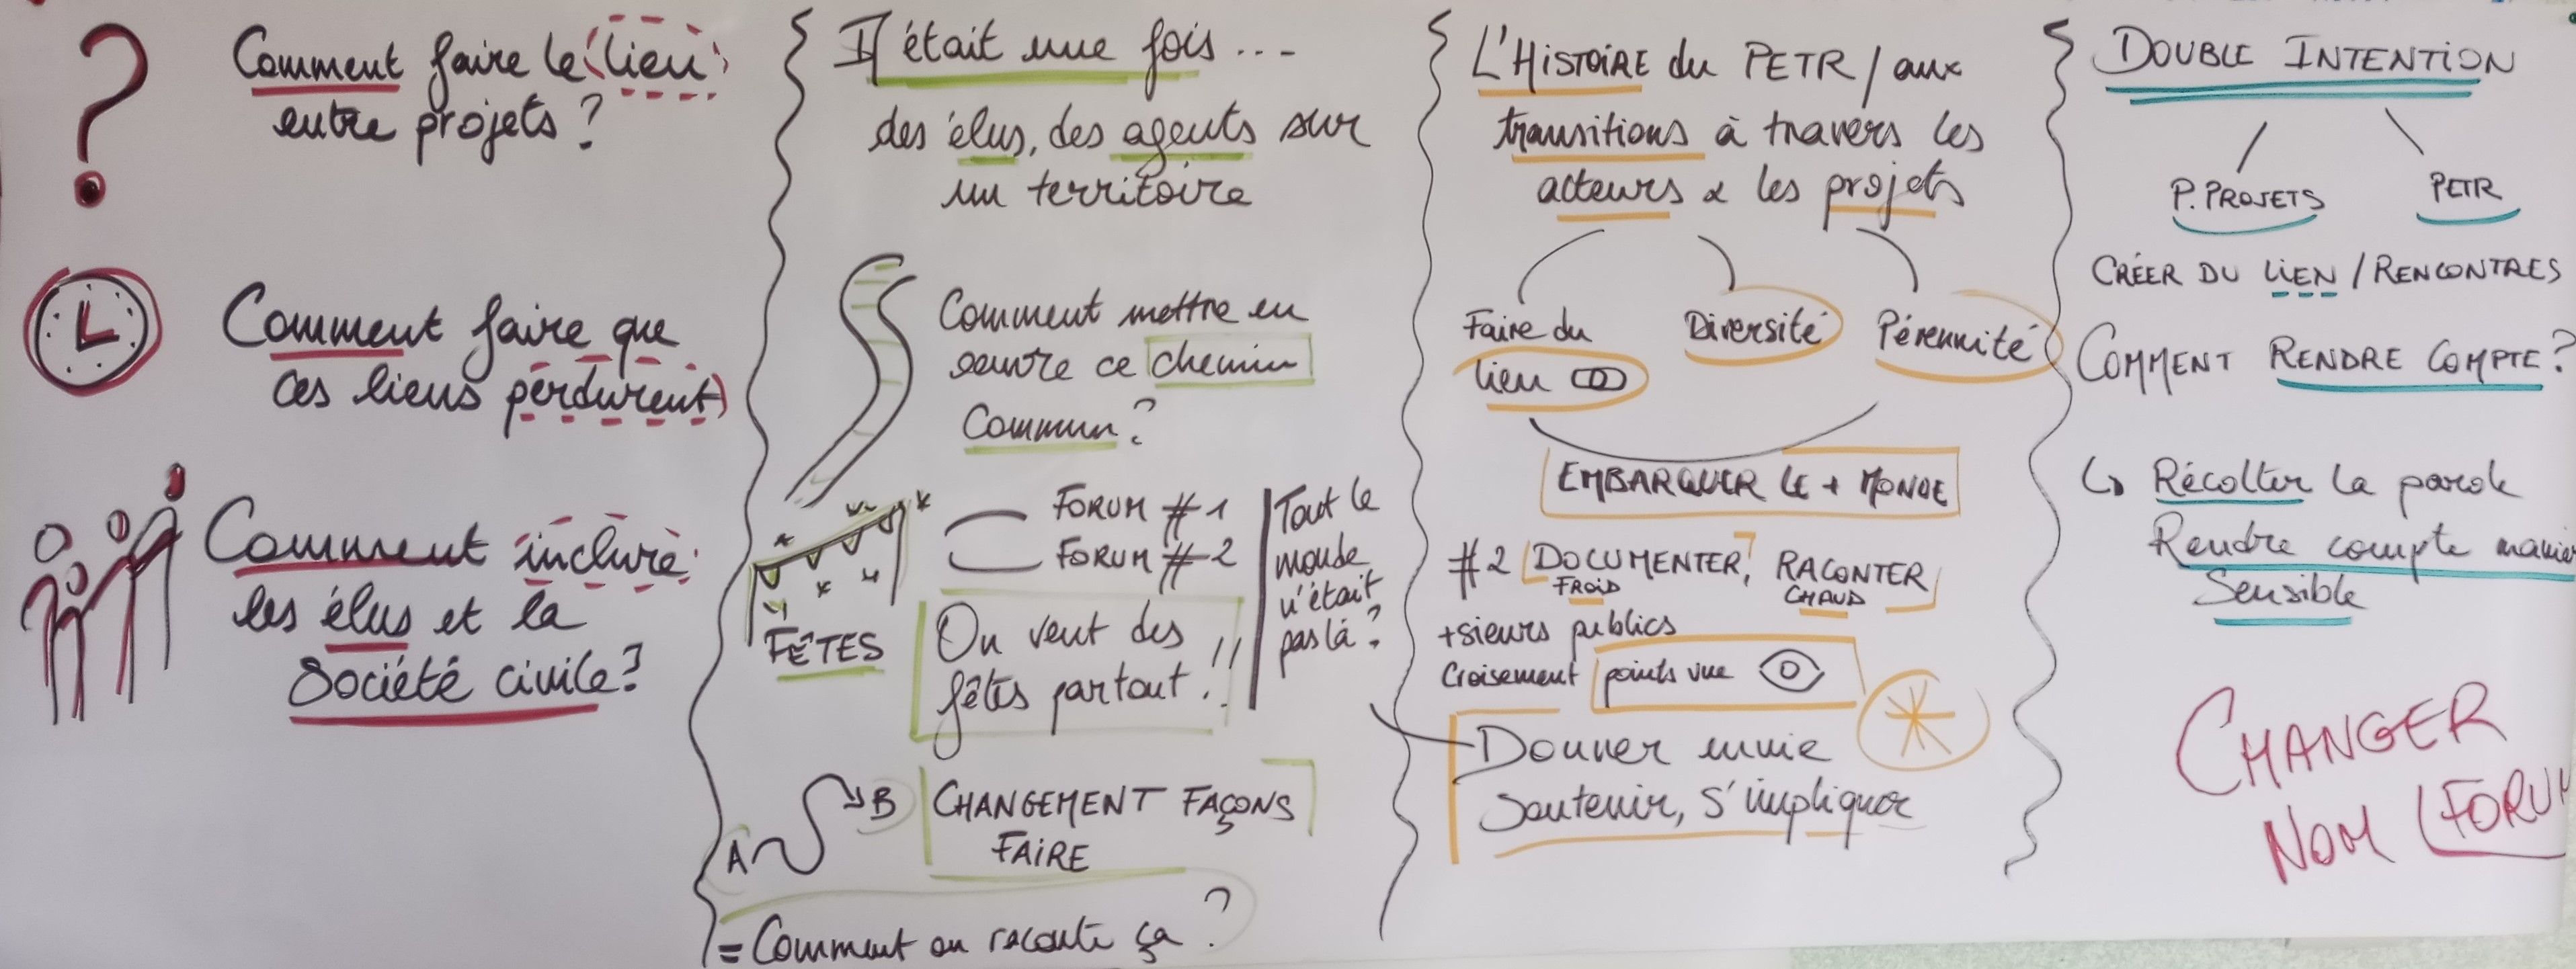 Comment faire le lien
entre projets ?
Comment faire que
ces liens perdurent
Comment inclure
les élus et la
Société civile ?
Il était une fois ...
des élus, des agents sur
un territoire
Comment mettre en
oeuvre ce chemin
Commun ?
FORUM #1
FORUM #2
Tout le
monde
n'était
pas là ?
FÊTES
On veut des
fêtes partout !!
A
B
CHANGEMENT FAÇONS
FAIRE
= Comment on raconte ça ?
L'HISTOIRE du PETR / aux
transitions à travers les
acteurs & les projets
Faire du
lien
Diversité
Pérennité
EMBARQUER LE + MONDE
#2 DOCUMENTER, RACONTER
FROID CHAUD
+sieurs publics
Croisement points vue
Donner envie
Soutenir, s'impliquer
DOUBLE INTENTION
P. PROJETS PETR
CRÉER DU LIEN / RENCONTRES
COMMENT RENDRE COMPTE ?
↳ Récolter la parole
Rendre compte manie
Sensible
CHANGER
NOM (FORUM